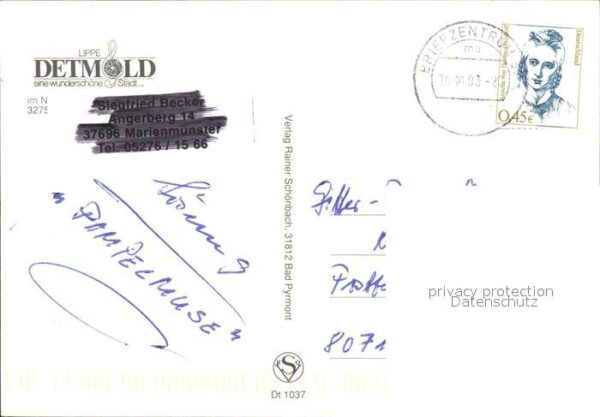 LIPPE
DETMOLD
eine wunderschöne Stadt...
Im N
3275
Siegfried Becker
Angerberg 14
37696 Marienmünster
Tel. 05276 / 15 66
Lösung
"PAMPELMUSE"
Verlag Rainer Schönbach, 31812 Bad Pyrmont
Dt 1037
BRIEFZENTRUM
Deutschland
0,45€
Gitter-
Postfa
8071
privacy protection
Datenschutz